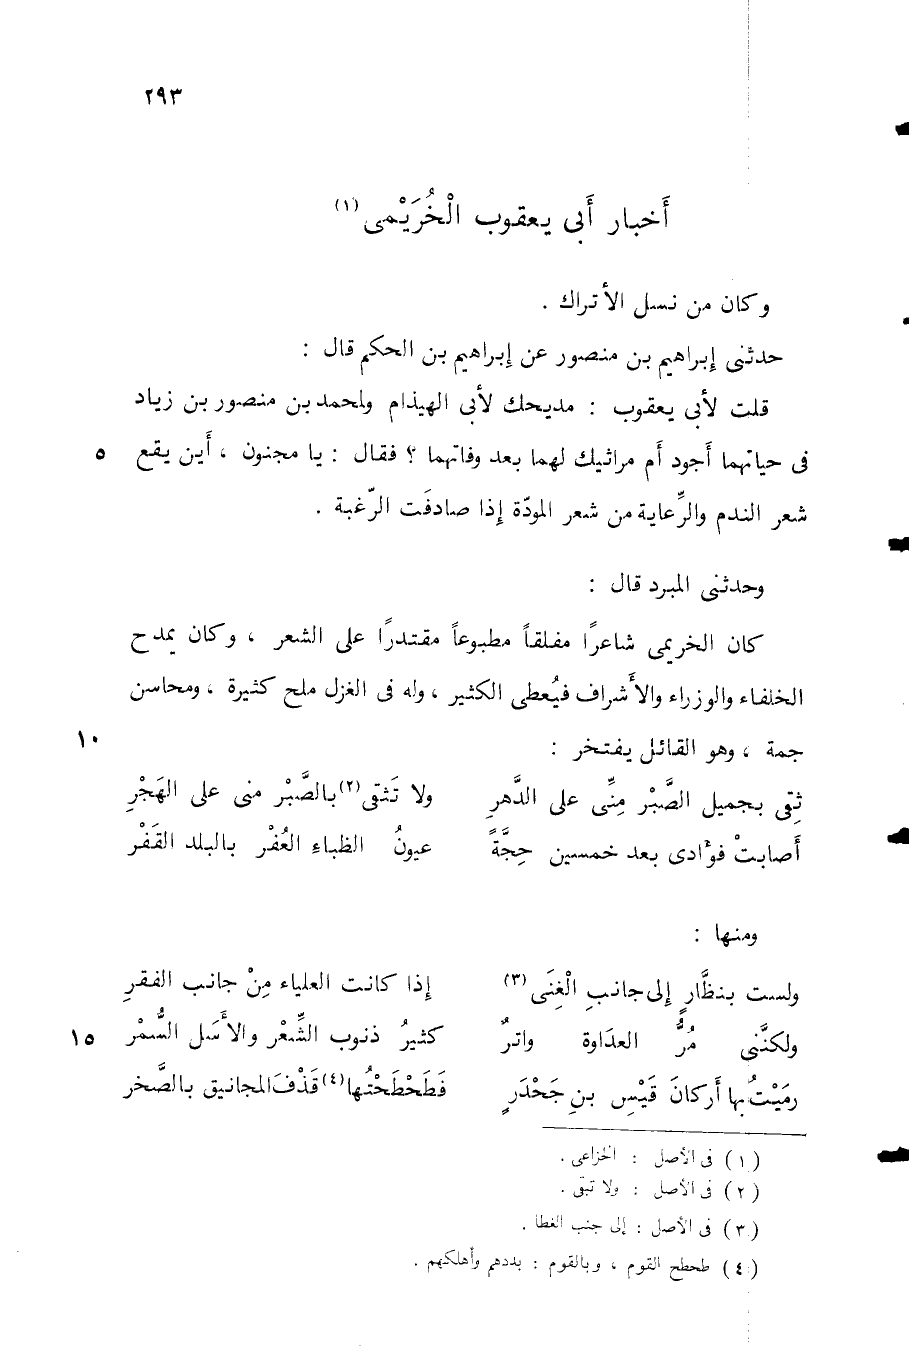 ٢٩٣
أخبار أَبى يعقوب الْخُرَيْمى (١)
وكان من نسل الأتراك .
حدثنى إبراهيم بن منصور عن إبراهيم بن الحكم قال :
قلت لأبى يعقوب : مديحك لأبى الهيذام ولمحمد بن منصور بن زياد
فى حياتهما أَجود أم مراثيك لهما بعد وفاتهما ؟ فقال : يا مجنون ، أَين يقع ٥
شعر الندم والرِّعاية من شعر المودّة إذا صادفَت الرّغبة .
وحدثنى المبرد قال :
كان الخريمى شاعرًا مفلقاً مطبوعاً مقتدرًا على الشعر ، وكان يمدح
الخلفاء والوزراء والأَشراف فيُعطى الكثير ، وله فى الغزل ملح كثيرة ، ومحاسن
جمة ، وهو القائل يفتخر : ١٠
ثِقى بجميل الصَّبْر مِنِّى على الدَّهرِ ولا تَثقى(٢) بالصَّبْر منى على الهَجْرِ
أَصابتْ فؤادى بعد خمسين حِجَّةً عيونُ الظباءِ العُفْر بالبلد القَفْر
ومنها :
ولست بنظَّارٍ إلى جانبِ الْغِنَى (٣) إذا كانت العلياء مِنْ جانب الفقرِ
ولكنَّنى مُرُّ العدَاوة واترٌ كثيرُ ذنوب الشِّعْر والأَسَل السُّمْر ١٥
رمَيْتُ بها أَركانَ قَيْس بنِ جَحْدَرٍ فَطَحْطَحْتُها(٤) قَذْفَ المجانيق بالصَّخر
(١) فى الأصل : الخزاعى .
(٢) فى الأصل : ولا تبقى .
(٣) فى الأصل : إلى جنب الغطا .
(٤) طحطح القوم ، وبالقوم : بددهم وأهلكهم .